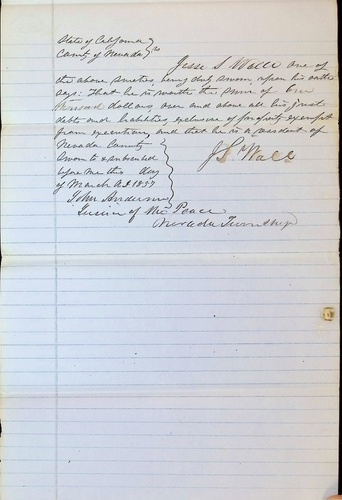 State of California } ss
County of Nevada
Jesse S Wall one of
the above sureties being duly sworn, upon his oath
says: That he is worth the sum of One
thousand dollars, over and above all his just
debts and liabilities, exclusive of property exempt
from execution, and that he is a resident of
Nevada County
J S Wall
Sworn to & subscribed
before me this day
of March AD 1857
John Anderson
Justice of the Peace
Nevada Township